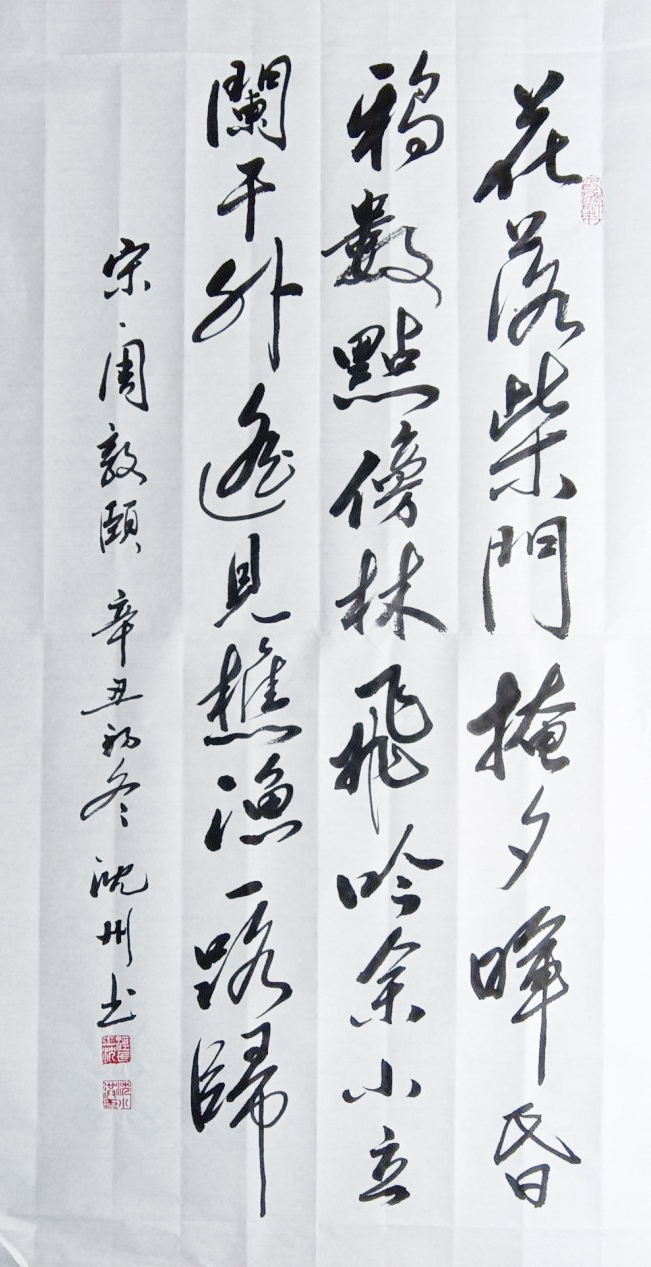 花落柴門掩夕暉昏
鴉數點傍林飛吟余小立
闌干外遙見樵漁一路歸
宋·周敦頤 辛丑初冬 沈州书